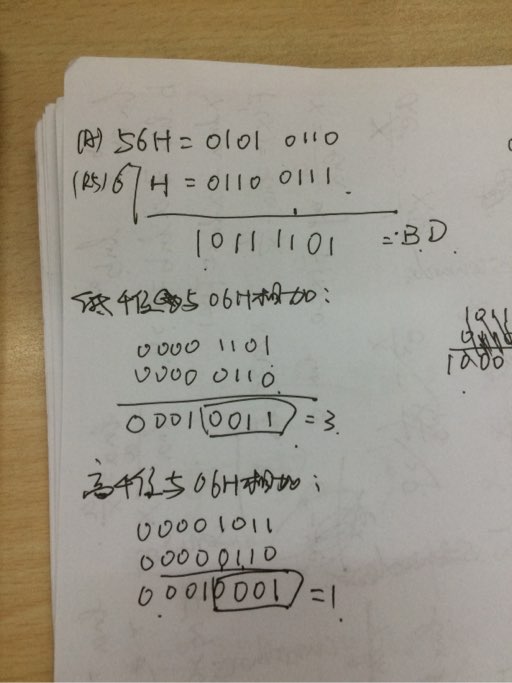 (A) 56H = 0101 0110
(R5) 67H = 0110 0111
1011 1101 = BD
低4位与06H相加:
0000 1101
0000 0110
0001 0011 = 3
高4位与06H相加:
0000 1011
0000 0110
0001 0001 = 1